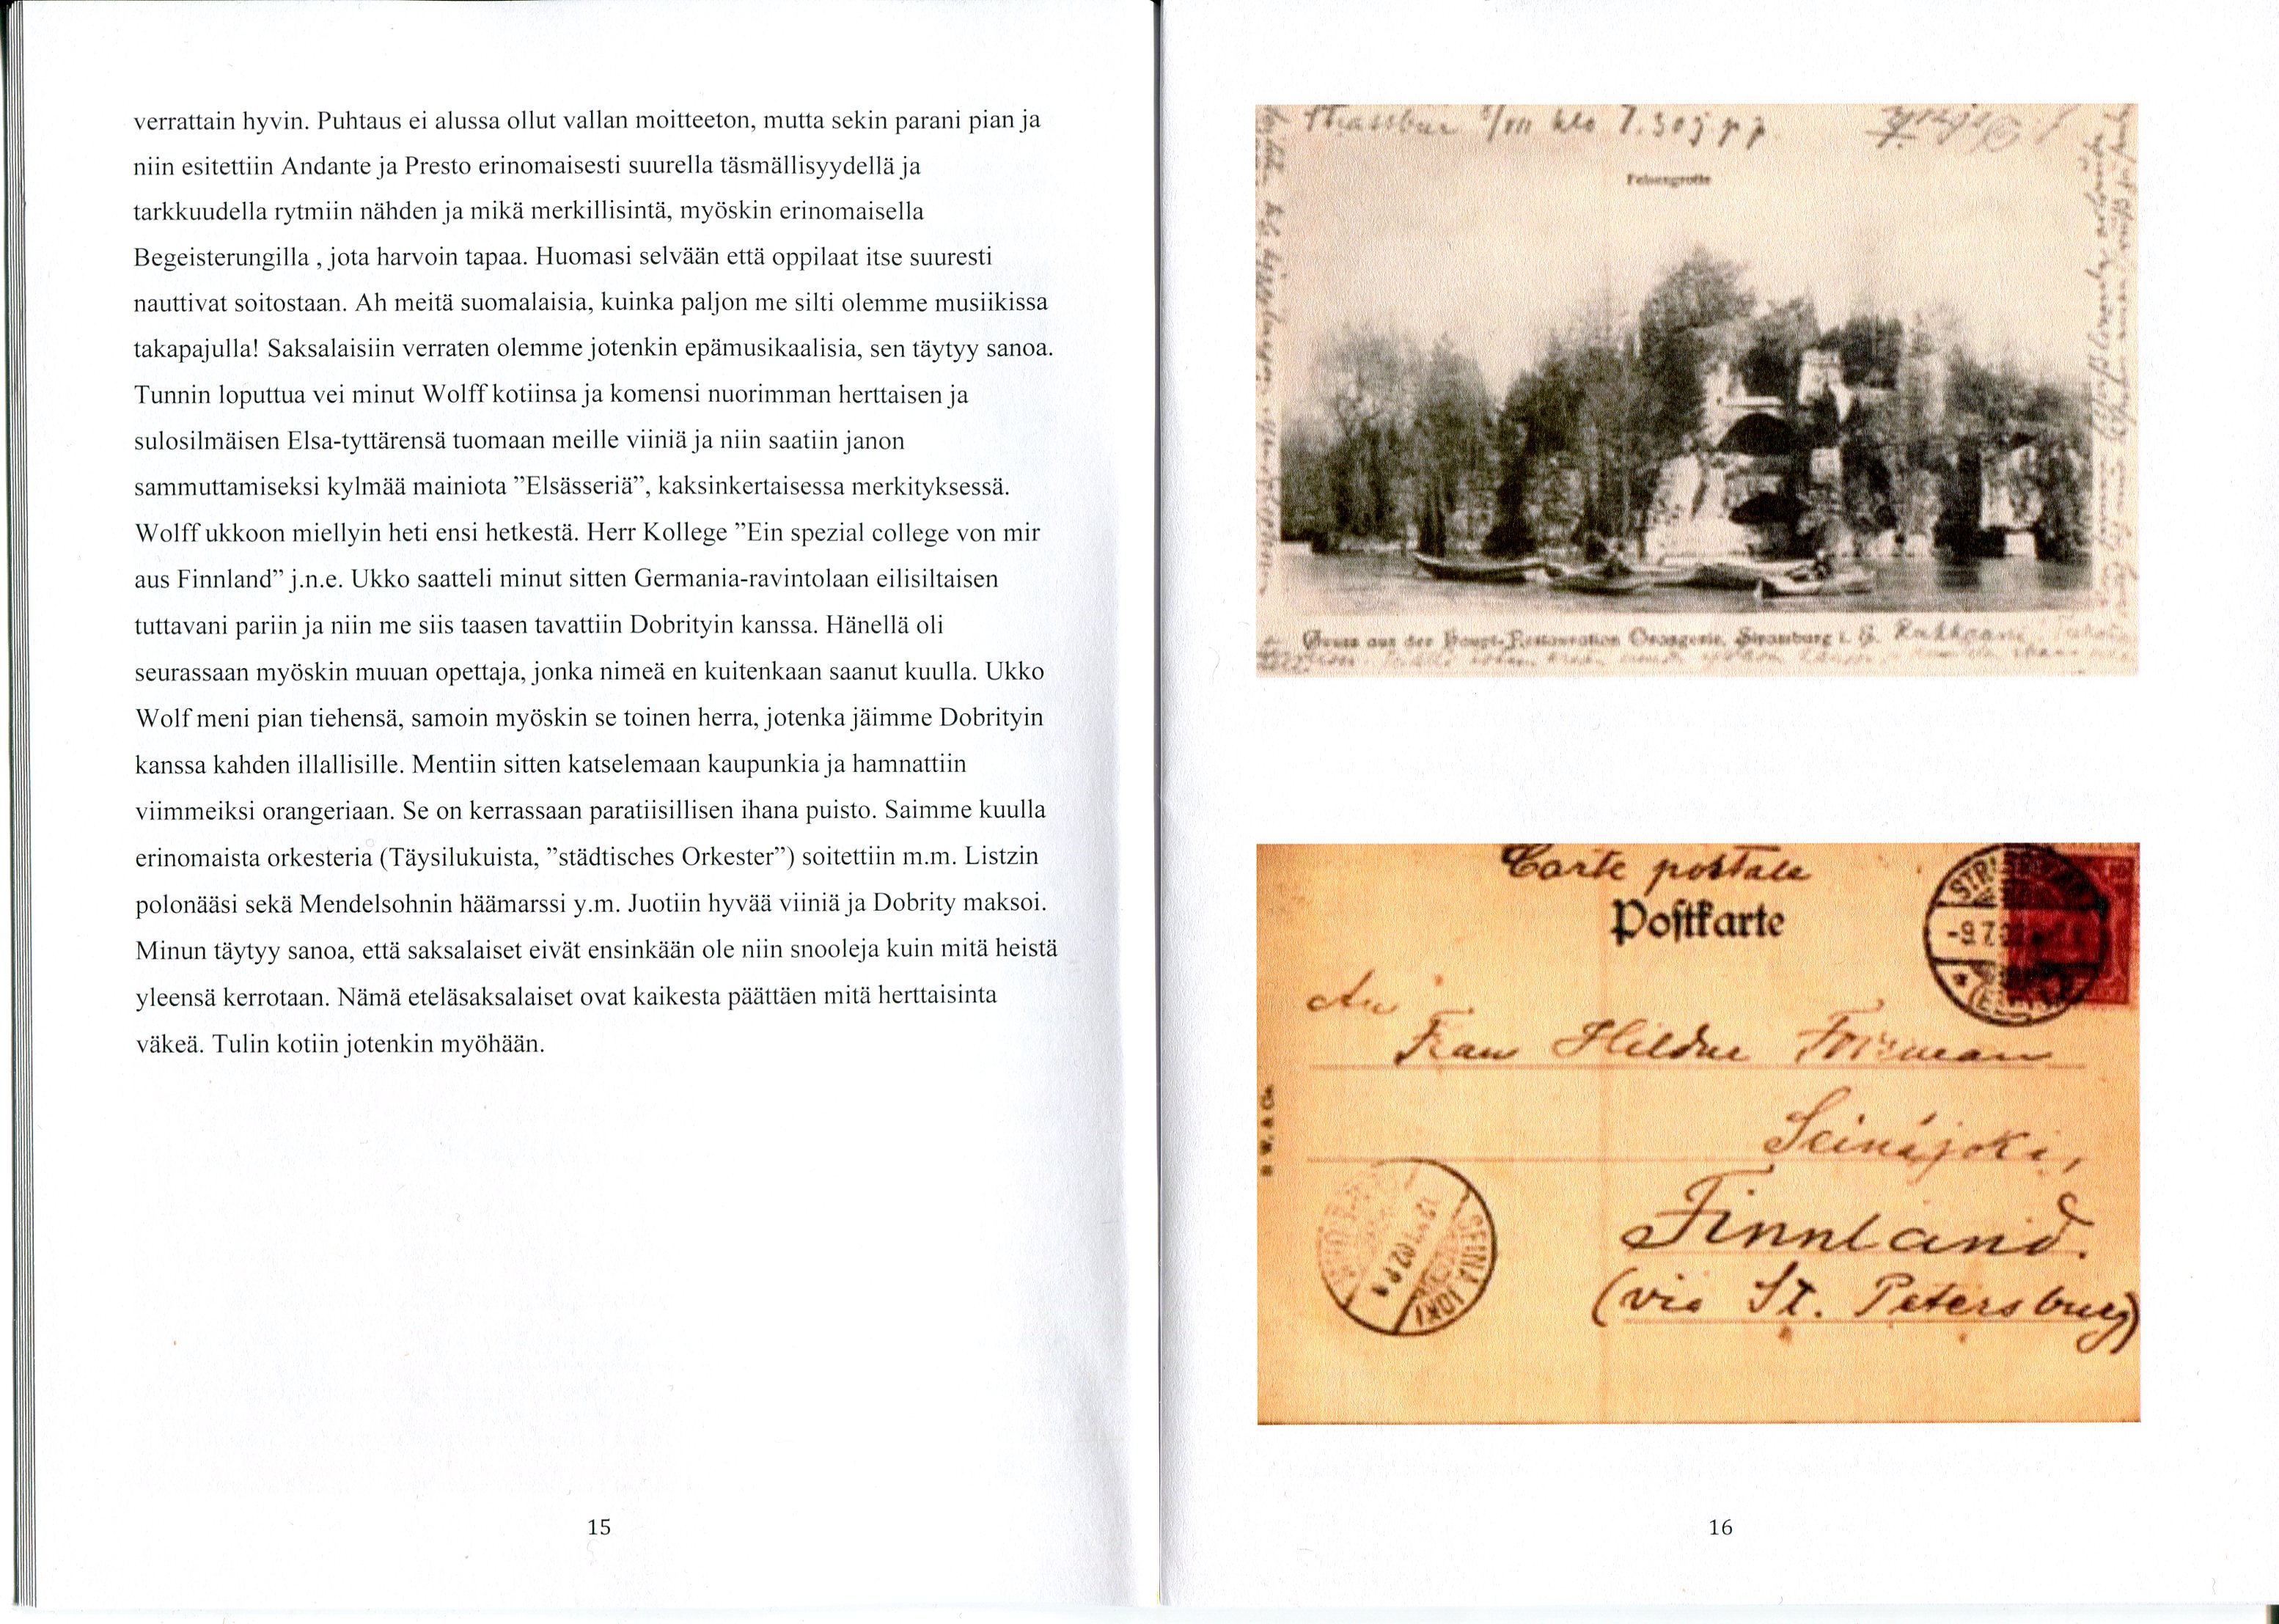 verrattain hyvin. Puhtaus ei alussa ollut vallan moitteeton, mutta sekin parani pian ja
niin esitettiin Andante ja Presto erinomaisesti suurella täsmällisyydellä ja
tarkkuudella rytmiin nähden ja mikä merkillisintä, myöskin erinomaisella
Begeisterungilla , jota harvoin tapaa. Huomasi selvään että oppilaat itse suuresti
nauttivat soitostaan. Ah meitä suomalaisia, kuinka paljon me silti olemme musiikissa
takapajulla! Saksalaisiin verraten olemme jotenkin epämusikaalisia, sen täytyy sanoa.
Tunnin loputtua vei minut Wolff kotiinsa ja komensi nuorimman herttaisen ja
sulosilmäisen Elsa-tyttärensä tuomaan meille viiniä ja niin saatiin janon
sammuttamiseksi kylmää mainiota ”Elsässeriä”, kaksinkertaisessa merkityksessä.
Wolff ukkoon miellyin heti ensi hetkestä. Herr Kollege ”Ein spezial college von mir
aus Finnland” j.n.e. Ukko saatteli minut sitten Germania-ravintolaan eilisiltaisen
tuttavani pariin ja niin me siis taasen tavattiin Dobrityin kanssa. Hänellä oli
seurassaan myöskin muuan opettaja, jonka nimeä en kuitenkaan saanut kuulla. Ukko
Wolf meni pian tiehensä, samoin myöskin se toinen herra, jotenka jäimme Dobrityin
kanssa kahden illallisille. Mentiin sitten katselemaan kaupunkia ja hamnattiin
viimmeiksi orangeriaan. Se on kerrassaan paratiisillisen ihana puisto. Saimme kuulla
erinomaista orkesteria (Täysilukuista, ”städtisches Orkester”) soitettiin m.m. Listzin
polonääsi sekä Mendelsohnin häämarssi y.m. Juotiin hyvää viiniä ja Dobrity maksoi.
Minun täytyy sanoa, että saksalaiset eivät ensinkään ole niin snooleja kuin mitä heistä
yleensä kerrotaan. Nämä eteläsaksalaiset ovat kaikesta päättäen mitä herttaisinta
väkeä. Tulin kotiin jotenkin myöhään.
15
klo 7.30 j.p.p.
Felsengrotte
Gruss aus der Haupt-Restauration Orangerie, Strassburg i. E.
Carte postale
Postkarte
-9.7
An
Frau Hildur Forsman
Seinäjoki,
Finnland.
(via St. Petersburg)
16